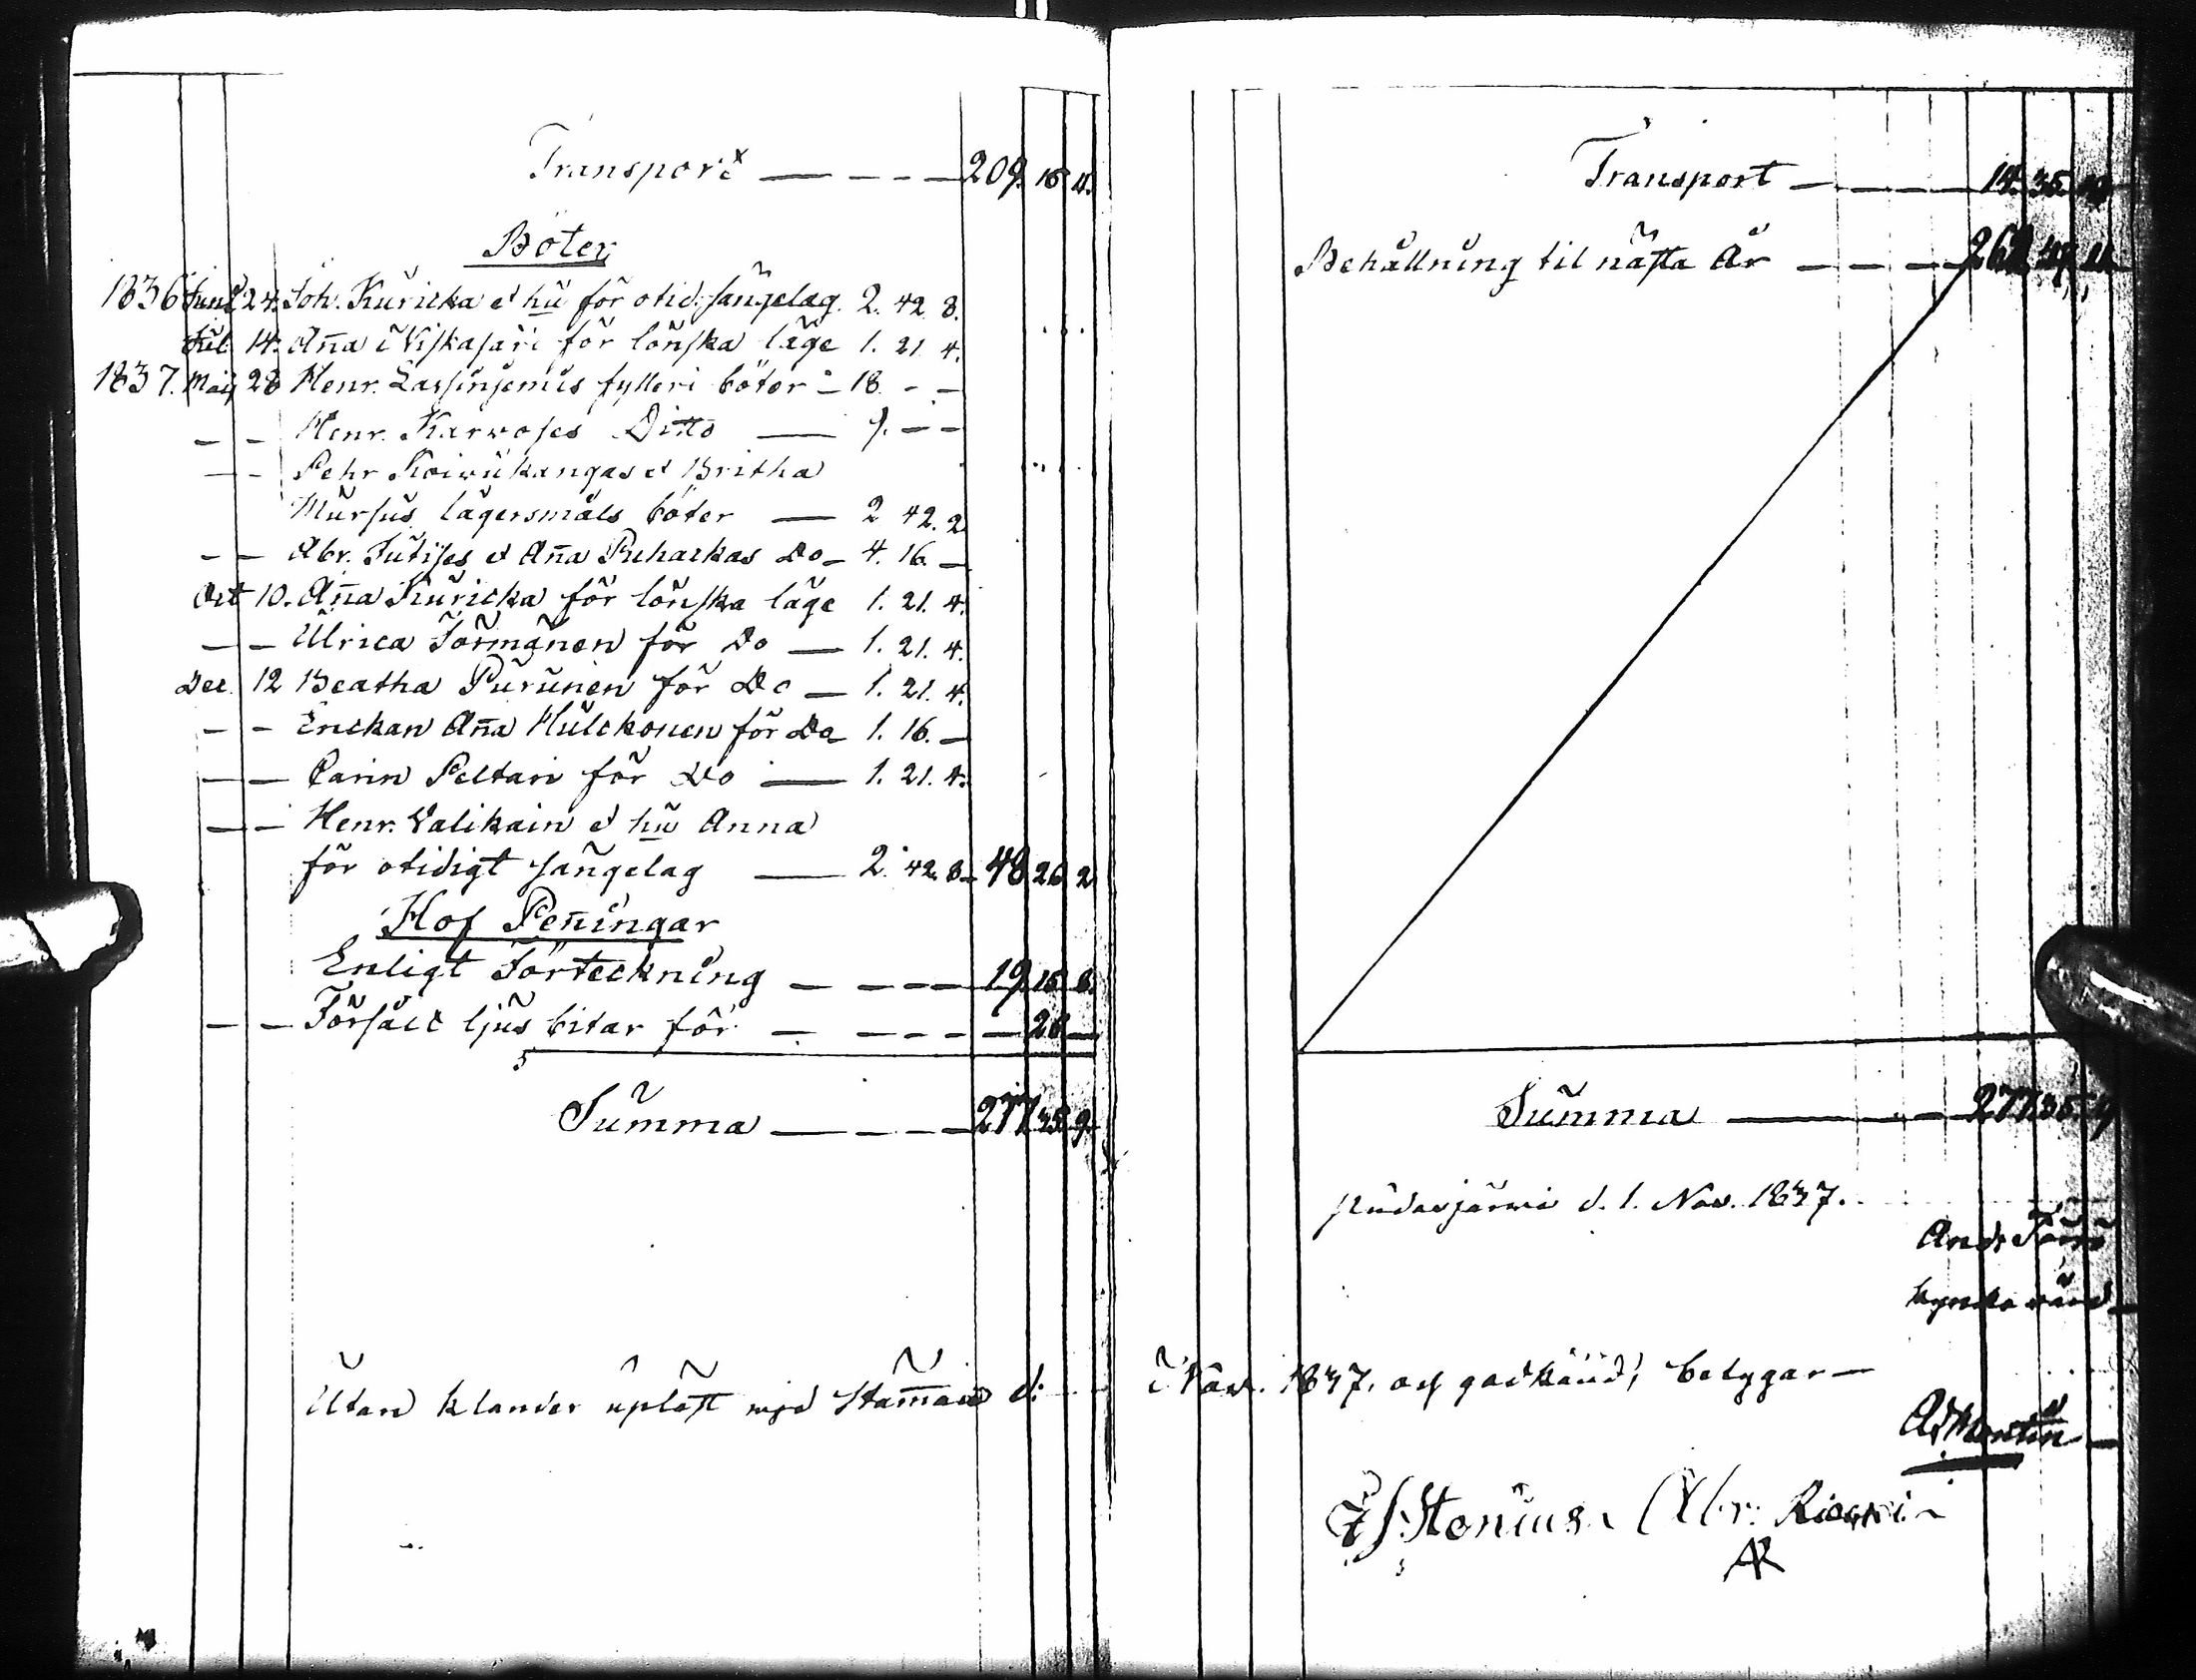 Transport — — — — 209. 16 4.
Böter
1836 Junii 24. Joh. Kuricka et hu för otid. sängelag. 2. 42. 8.
Jul. 14. Anna i Viskasari för lönska läge 1. 21. 4.
1837. Maij 28 Henr. Lassinjemis fylleri böter — 18. — —
— — Henr. Karwoses Ditto — 9. — —
— — Pehr Koiwukangas et Britha
Mursus lägersmåls böter — 2 42. 2
— — Abr. Jutises et Anna Puhackas Do — 4. 16. —
Oct 10. Anna Kuricka för lönska läge 1. 21. 4.
— — Ulrica Törmänen för Do — 1. 21. 4.
Dec. 12 Beatha Purunen för Do — 1. 21. 4.
— — Enckan Anna Hulckonen för Do 1. 16. —
— — Carin Peltari för Do — 1. 21. 4.
— — Henr. Valikain et hu Anna
för otidigt sängelag — 2. 42. 8 — 48 26 2
Hof Penningar
Enligt Förteckning — — — — 19. 15 8.
— — Försålt ljus bitar för — — — — — 26 —
Summa — — — — 277. 35. 9.
Utan klander uplåst wid Stämman d:
Transport — — — — 14. 35.
Behållning til nästa År — — — 262
Summa — — 277. 35
Pudasjärwi d. 1. Nov. 1837.
And:
kyrko wärd
i Nov. 1837. och godkänd; betygar —
J J: Stenius. Abr: Riekki
AR